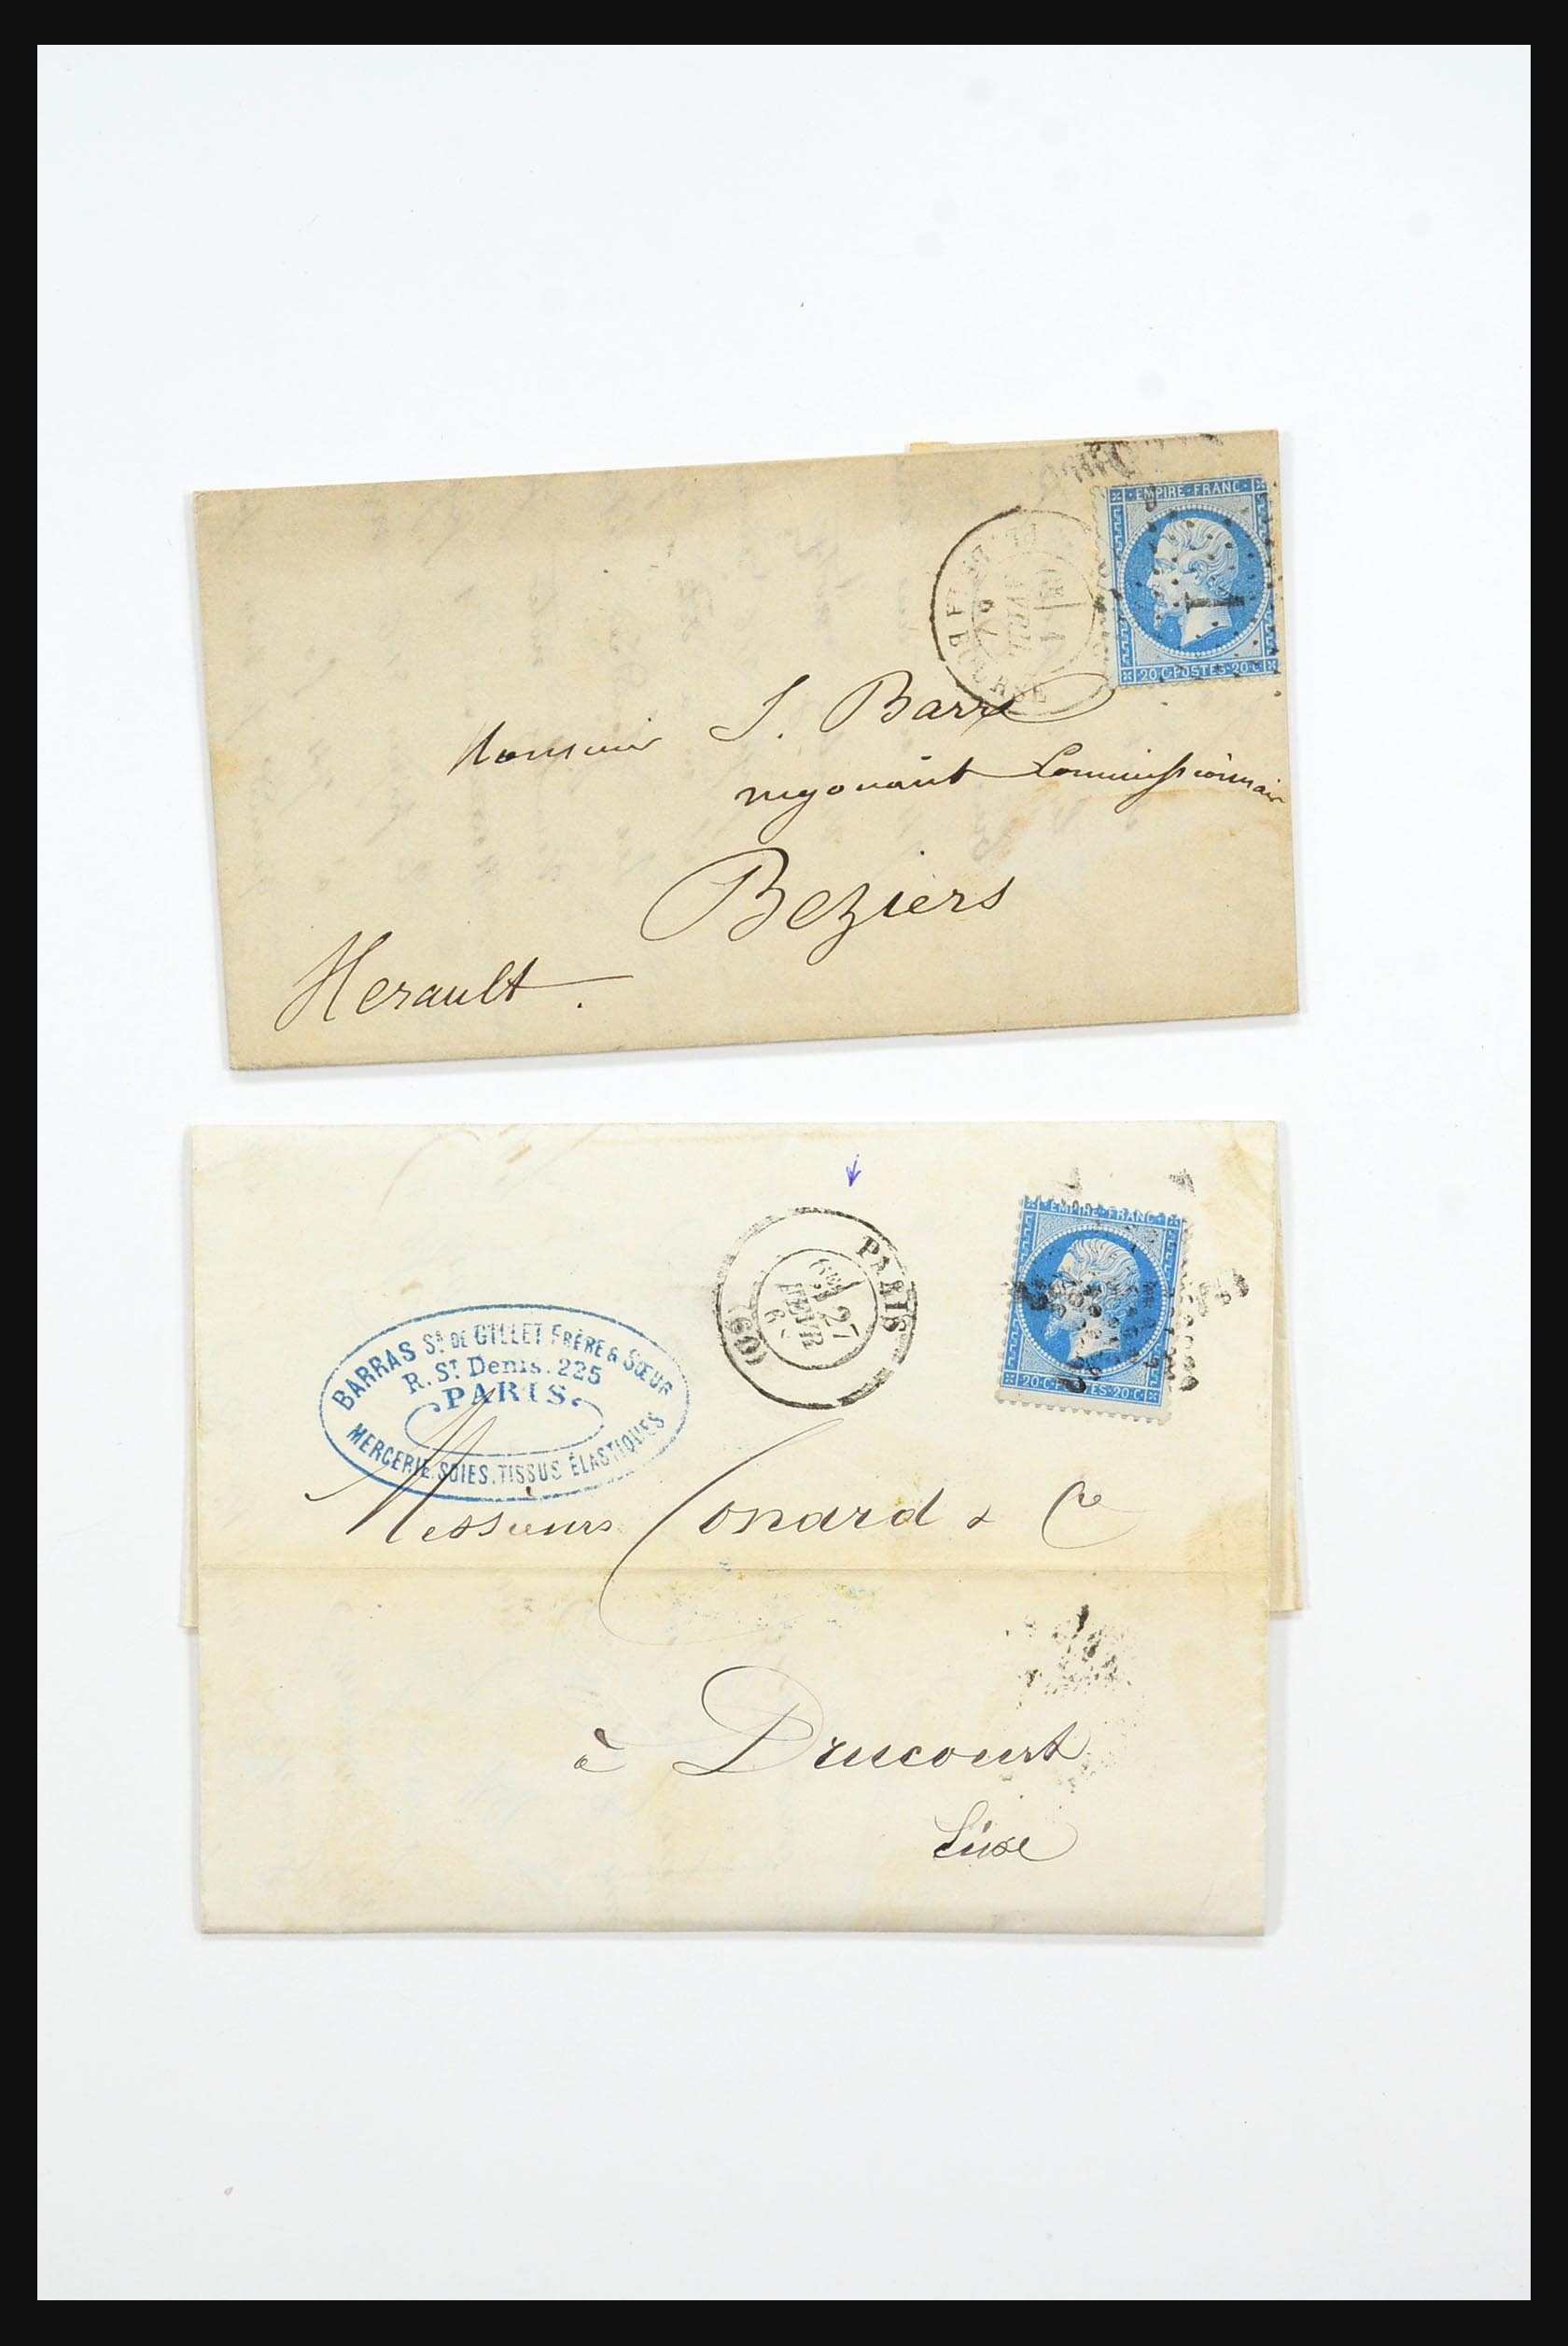 EMPIRE FRANC
1
20 C POSTES 20 C
PL. DE LA BOURSE
1
AVRIL
67
Monsieur J. Barre
negociant Commissionnair
Beziers
Herault.
EMPIRE FRANC
20 C POSTES 20 C
PARIS
27
FEVR
6
(60)
BARRAS Sr DE GILLET FRÈRE & SŒUR
R. St Denis. 225
PARIS
MERCERIE. SOIES. TISSUS ÉLASTIQUES
Messieurs Conard & Cie
à Drucourt
Eure